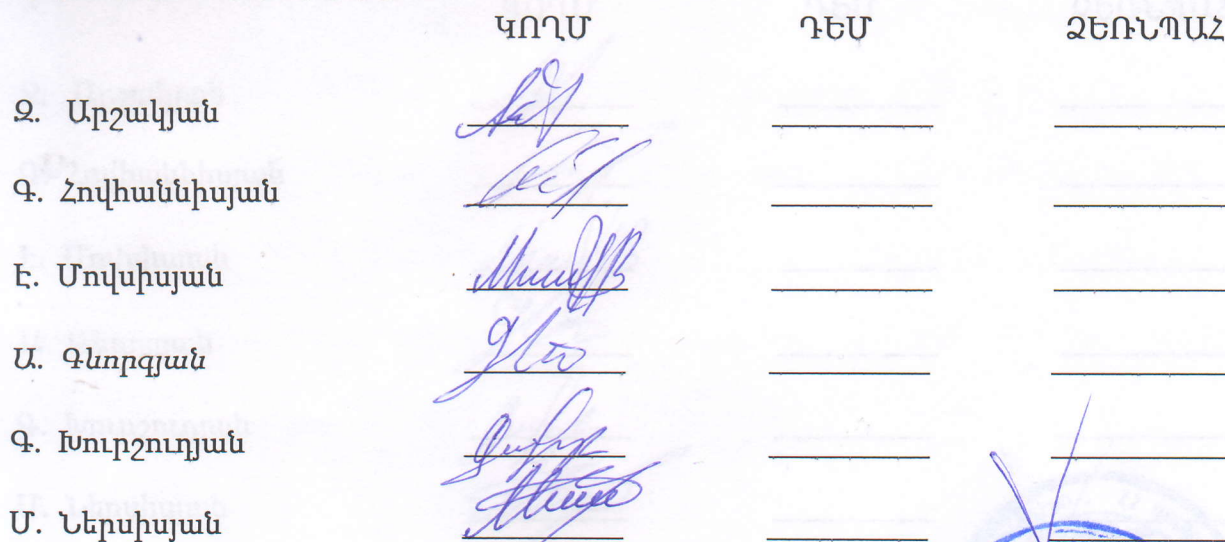 ԿՈՂՄ ԴԵՄ ՁԵՌՆՊԱՀ
Զ. Արշակյան
Գ. Հովհաննիսյան
Է. Մովսիսյան
Ա. Գևորգյան
Գ. Խուրշուդյան
Մ. Ներսիսյան